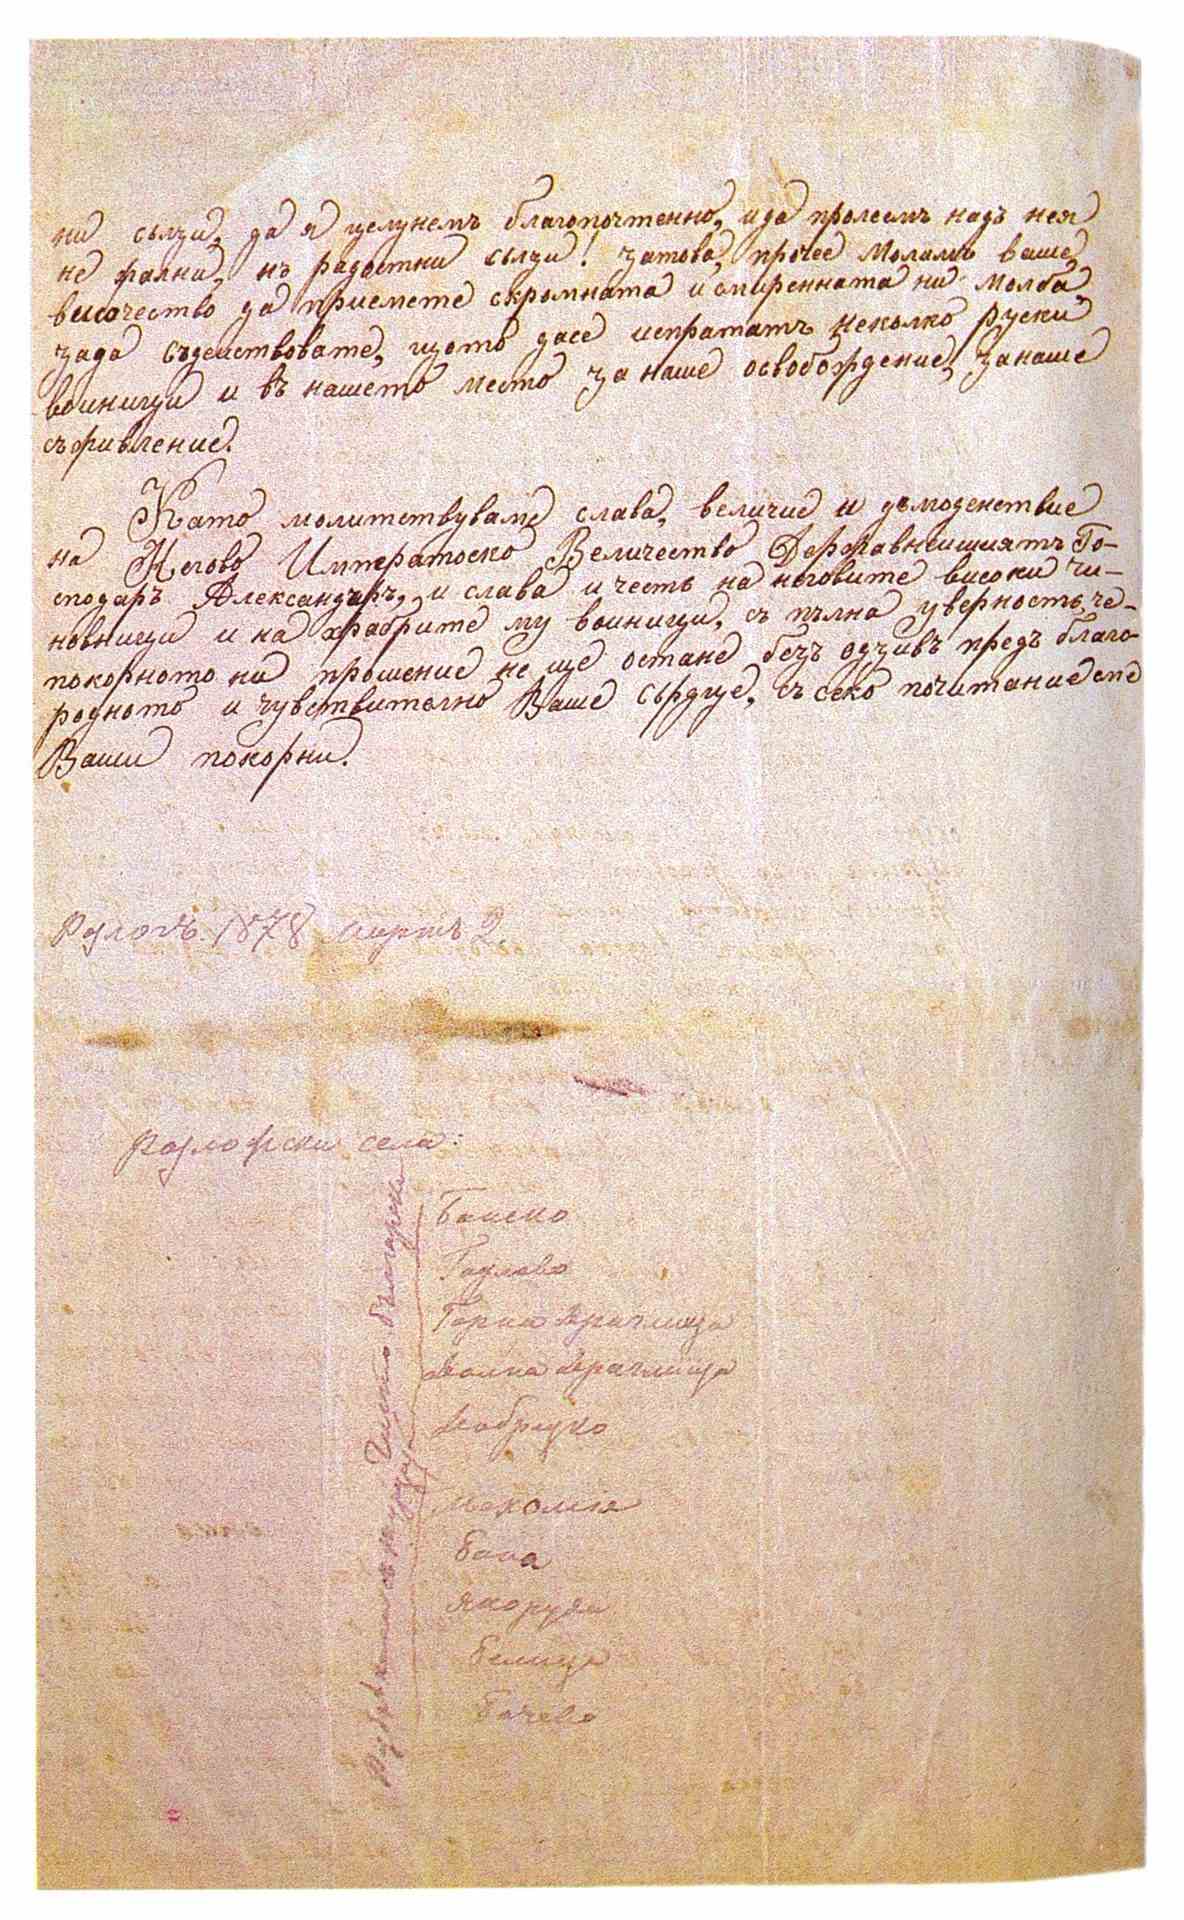 ни сълзи, да я целунемъ благопочтенно, и да пролеемъ надъ нея
не жални, нъ радостни сълзи! Затова, прочее молимъ ваше
височество да приемете скромната и смиренната ни молба,
зада съдействовате, щото дасе испратятъ неколко руски
воиници и въ нашето место за наше освобождение, за наше
съживление.
Като молитствуваме слава, величие и дългоденствие
на Негово Императоско Величество Державнеишиятъ Го-
сподаръ Александъръ, и слава и честь на неговите високи чи-
новници и на храбрите му воиници, съ пълна уверность, че-
покорното ни прошение не ще остане безъ одзивъ предъ благо-
родното и чувствително Ваше сърдце, съ секо почитание сме
Ваши покорни.
Разлогъ. 1878 мартъ 2.
Разложски села:
Чисто български
Банско
Годлево
Горна Драглища
Долна Драглища
Добърско
Мехомия
Баня
Якоруда
Белица
Бачево